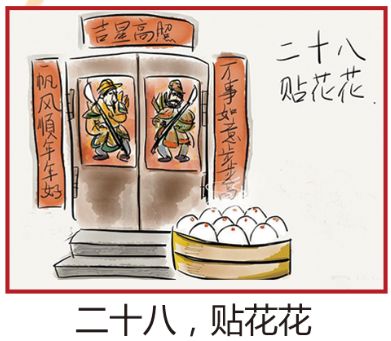 吉星高照
一帆风順年年好
万事如意步步高
二十八
贴花花
二十八，贴花花